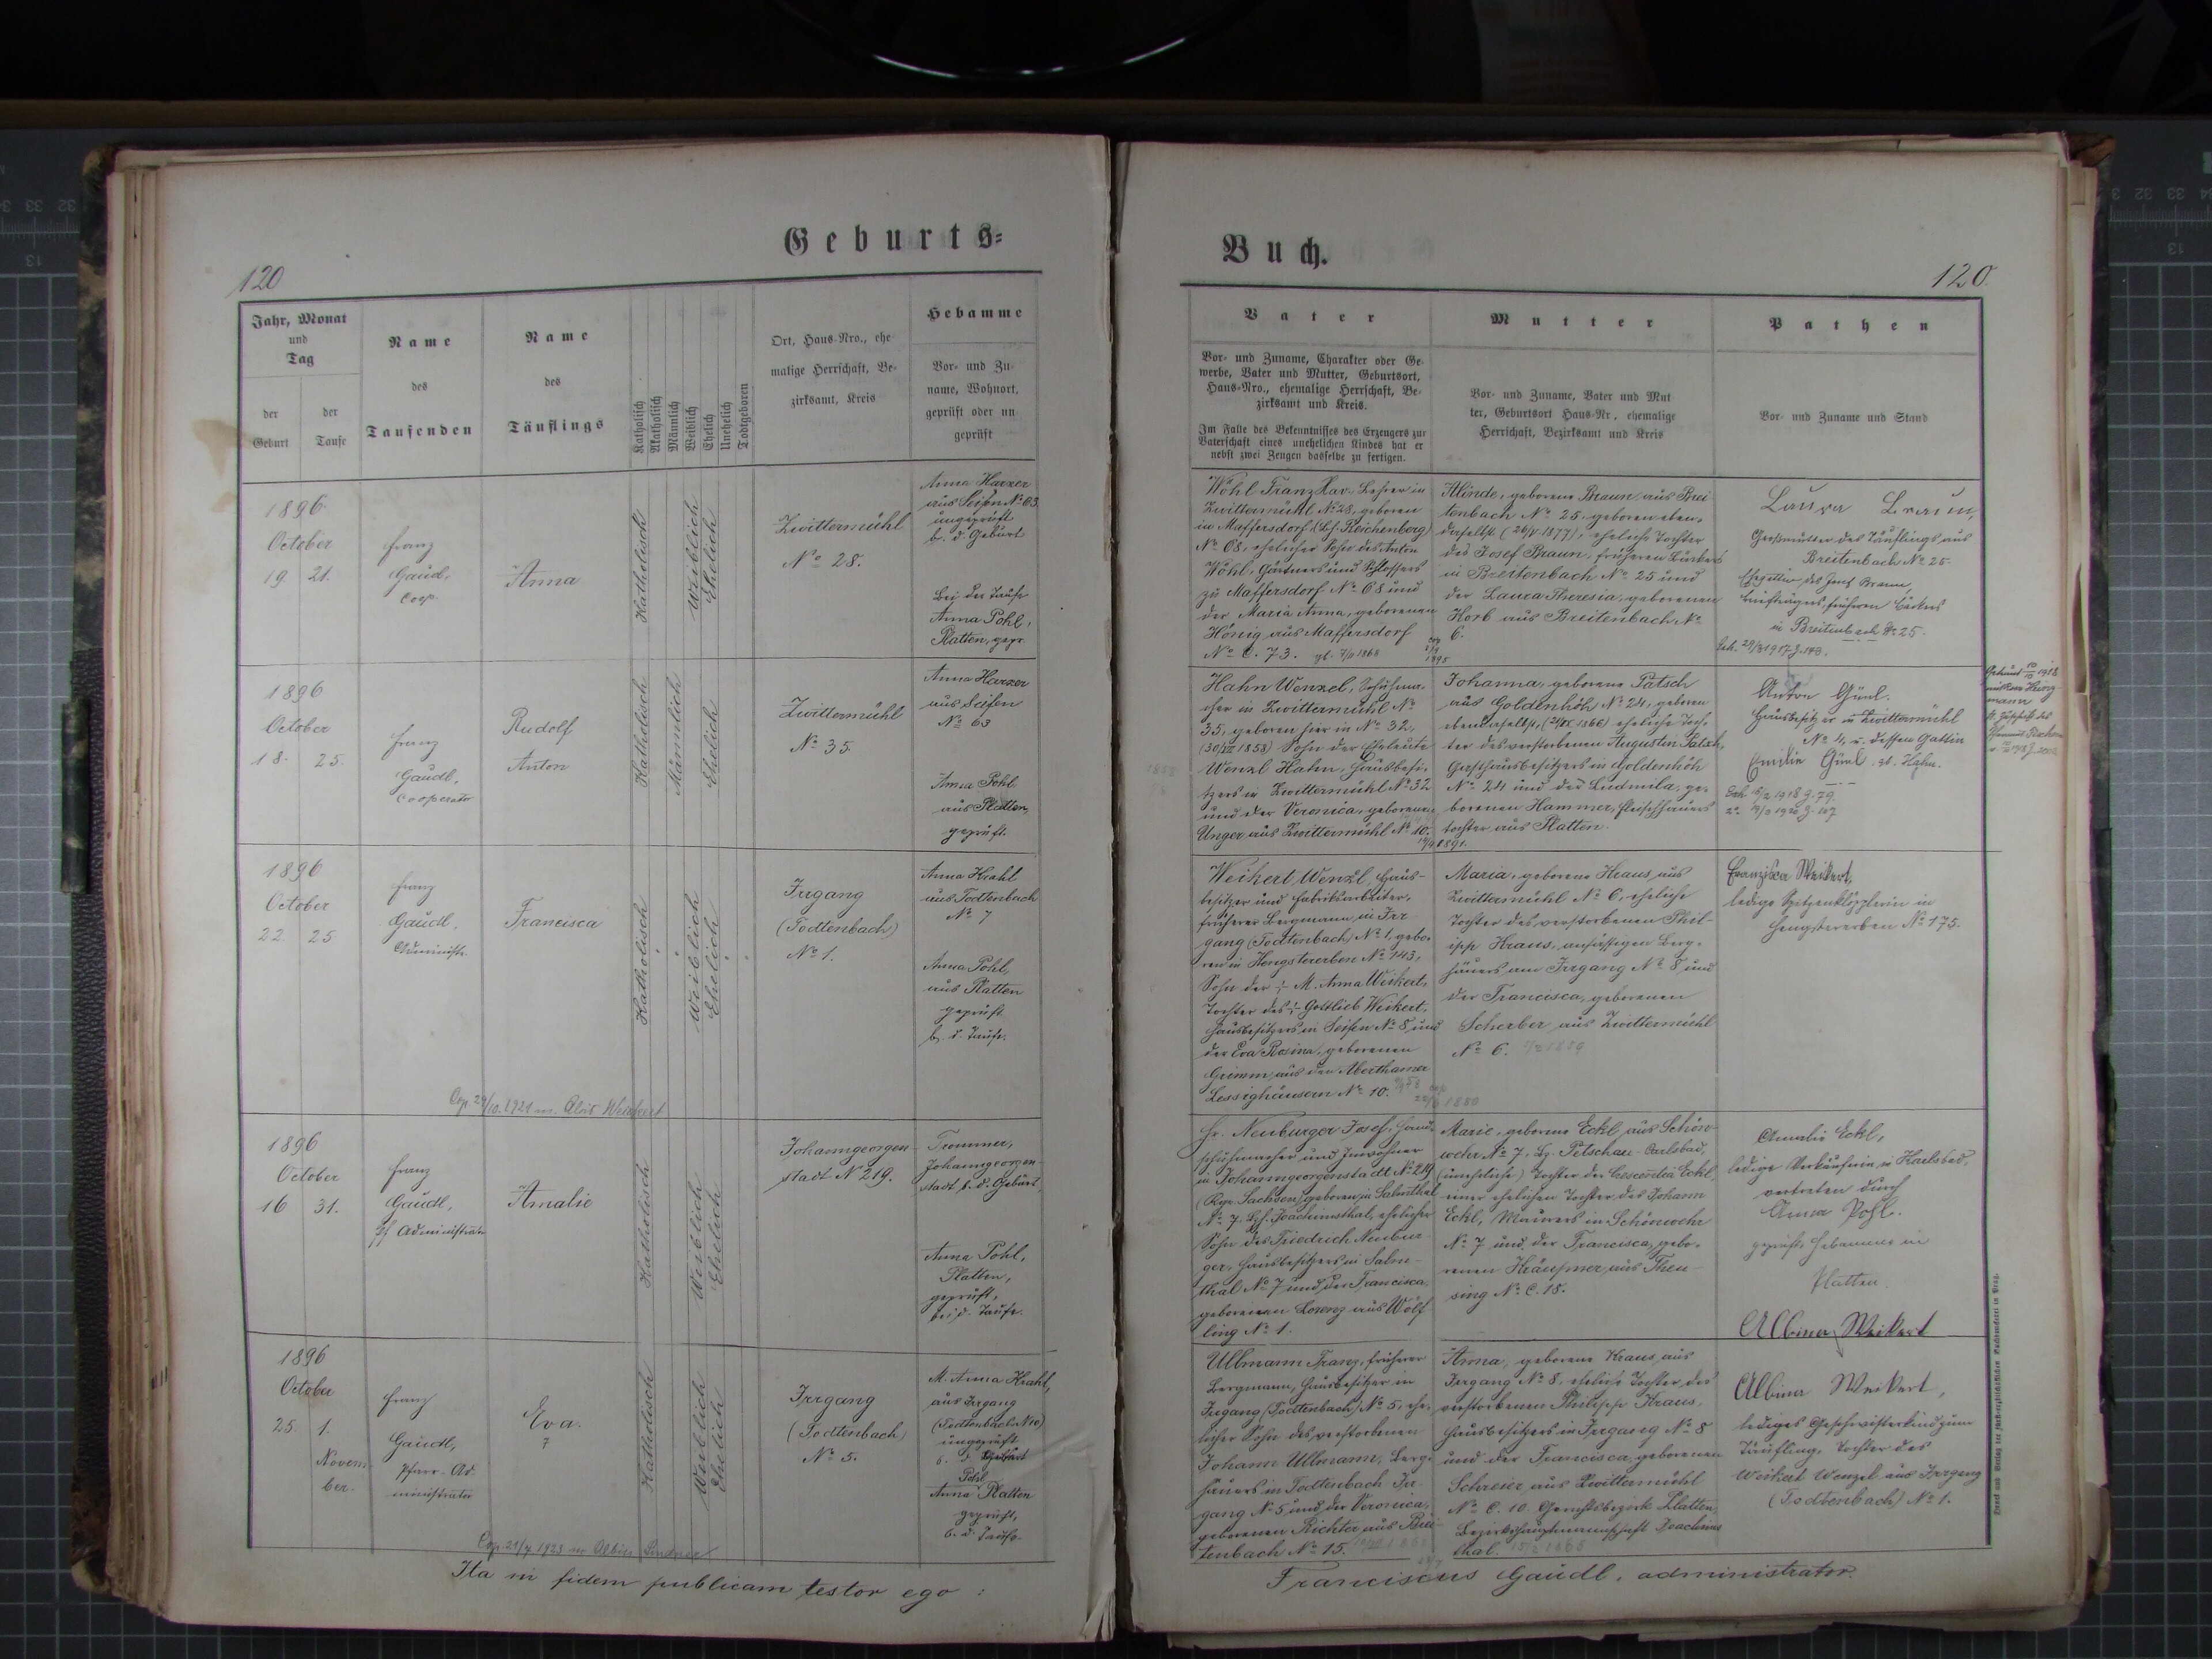 Geburts=
120
Jahr, Monat
und
Tag
der
Geburt
der
Taufe
Name
des
Taufenden
Name
des
Täuflings
Katholisch
Akatholisch
Männlich
Weiblich
Ehelich
Unehelich
Todtgeboren
Ort, Haus-Nro., ehe-
malige Herrschaft, Be-
zirksamt, Kreis
Hebamme
Vor- und Zu-
name, Wohnort,
geprüft oder un
geprüft
1896
October
19 21.
Franz
Gaudl,
Coop.
Anna
Katholisch
Weiblich
Ehelich
Zwittermühl
No 28.
Anna Harzer
aus Seifen No 63
ungeprüft
b. d. Geburt
Bei der Taufe
Anna Pohl,
Platten, gepr.
1896
October
18. 25.
Franz
Gaudl,
Cooperator
Rudolf
Anton
Katholisch
Männlich
Ehelich
Zwittermühl
No 35.
Anna Harzer
aus Seifen
No 63
Anna Pohl
aus Platten,
geprüft.
1896
October
22. 25
Franz
Gaudl,
Administr.
Francisca
Katholisch
Weiblich
Ehelich
Irrgang
(Todtenbach)
No 1.
Anna Krahl
aus Todtenbach
No 7
Anna Pohl,
aus Platten
geprüft
b. d. Taufe.
Cop. 29/10. 1921 m. Alois
1896
October
16 31.
Franz
Gaudl,
Pf. Administrator
Amalie
Katholisch
Weiblich
Ehelich
Johanngeorgen-
stadt No 219.
Trommer,
Johanngeorgen-
stadt b. d. Geburt.
Anna Pohl,
Platten,
geprüft,
bei d. Taufe.
1896
October
25. 1.
Novem-
ber.
Franz
Gaudl,
Pfarr-Ad-
ministrator
Eva.
Katholisch
Weiblich
Ehelich
Irrgang
(Todtenbach)
No 5.
M. Anna Krahl,
aus Irrgang
(Todtenbach No 10)
ungeprüft
b. d. Geburt
Pohl
Anna Platten
geprüft,
b. d. Taufe.
Cop. 21/7 1923 m. Albin
Ita in fidem publicam testor ego :
Buch.
120.
Vater
Vor- und Zuname, Charakter oder Ge-
werbe, Vater und Mutter, Geburtsort,
Haus-Nro., ehemalige Herrschaft, Be-
zirksamt und Kreis.
Im Falle des Bekenntnisses des Erzeugers zur
Vaterschaft eines unehelichen Kindes hat er
nebst zwei Zeugen dasselbe zu fertigen.
Mutter
Vor- und Zuname, Vater und Mut
ter, Geburtsort Haus-Nr, ehemalige
Herrschaft, Bezirksamt und Kreis
Pathen
Vor- und Zuname und Stand
Wöhl Franz Xav. Lehrer in
Zwittermühl No 28, geboren
in Maffersdorf (Bzh. Reichenberg)
No 68, ehelicher Sohn des Anton
Wöhl, Gärtners und Schlossers
zu Maffersdorf No 68 und
der Maria Anna, geborenen
Hönig aus Maffersdorf
No C. 73.
Alinde, geborene Braun aus Brei-
tenbach No 25, geboren eben-
daselbst (26/V 1877), eheliche Tochter
des Josef Braun, früheren Bäckers
in Breitenbach No 25 und
der Laura Theresia, geborenen
Korb aus Breitenbach No
6.
Laura Braun,
Großmutter des Täuflings aus
Breitenbach No 25.
Ehegattin des Josef Braun,
Briefträgers, früheren Bäckers
in Breitenbach No 25.
Hahn Wenzel, Schuhma-
cher in Zwittermühl No
35, geboren hier in No 32,
Sohn der Eheleute
Wenzl Hahn, Hausbesi-
tzers in Zwittermühl No 32
und der Veronica, geborenen
Unger aus Zwittermühl No 10.
Johanna, geborene Patsch
aus Goldenhöh No 24, geboren
ebendaselbst, eheliche Toch-
ter des verstorbenen Augustin Patsch,
Gasthausbesitzers in Goldenhöh
No 24 und der Ludmila, ge-
borenen Hammer, Fleischhauers-
tochter aus Platten.
Anton Günl.
Hausbesitzer in Zwittermühl
No 4, u. dessen Gattin
Emilie Günl gb. Hahn.
Weikert, Wenzl, Haus-
besitzer und Fabriksarbeiter,
früherer Bergmann, in Irr-
gang (Todtenbach) No 1, gebo-
ren in Hengstererben No 143,
Sohn der M. Anna Weikert,
Tochter des Gottlieb Weikert,
Hausbesitzers in Seifen No 8, und
der Eva Rosina, geborenen
Grimm, aus den Aberthamer
Lessighäusern No 10.
Maria, geborene Kraus, aus
Zwittermühl No 6, eheliche
Tochter des verstorbenen Phil-
ipp Kraus, ansässigen Berg-
häuers am Irrgang No 8 und
der Francisca, geborenen
Scherber aus Zwittermühl
No 6.
Franziska Weikert,
ledige Spitzenklöpplerin in
Hengstererben No 175.
Hr. Neuburger Josef, Hand-
schuhmacher und Inwohner
in Johanngeorgenstadt No 219
(Kgr. Sachsen), geboren in Salmthal
No 7. Bzh. Joachimsthal, ehelicher
Sohn des Friedrich Neubur-
ger, Hausbesitzers in Salm-
thal No 7 und der Francisca,
geborenen Lorenz aus Wölf-
ling No 1.
Marie, geborene Eckl aus Schön-
wehr No 7, Bz. Petschau-Carlsbad,
(uneheliche) Tochter der Crescentia Eckl,
einer ehelichen Tochter des Johann
Eckl, Maurers in Schönwehr
No 7 und der Francisca, gebo-
renen Kräupner, aus Theu-
sing No C. 18.
Amalie Eckl,
ledige Verkäuferin in Karlsbad,
vertreten durch
Anna Pohl.
geprüfte Hebamme in
Platten.
Albina Weikert
Ullmann Franz, früherer
Bergmann, Hausbesitzer in
Irrgang (Todtenbach) No 5, ehe-
licher Sohn des verstorbenen
Johann Ullmann, Berg-
häuers in Todtenbach Irr-
gang No 5 und der Veronica,
geborenen Richter, aus Brei-
tenbach No 15.
Anna, geborene Kraus, aus
Irrgang No 8, eheliche Tochter des
verstorbenen Philipp Kraus,
Hausbesitzers in Irrgang No 8
und der Francisca, geborenen
Schreier, aus Zwittermühl
No C. 10. Gerichtsbezirk Platten,
Bezirkshauptmannschaft Joachims-
thal.
Albina Weikert,
lediges Geschwisterkind zum
Täufling, Tochter des
Weikert Wenzel aus Irrgang
(Todtenbach) No 1.
Franciscus Gaudl, administrator.